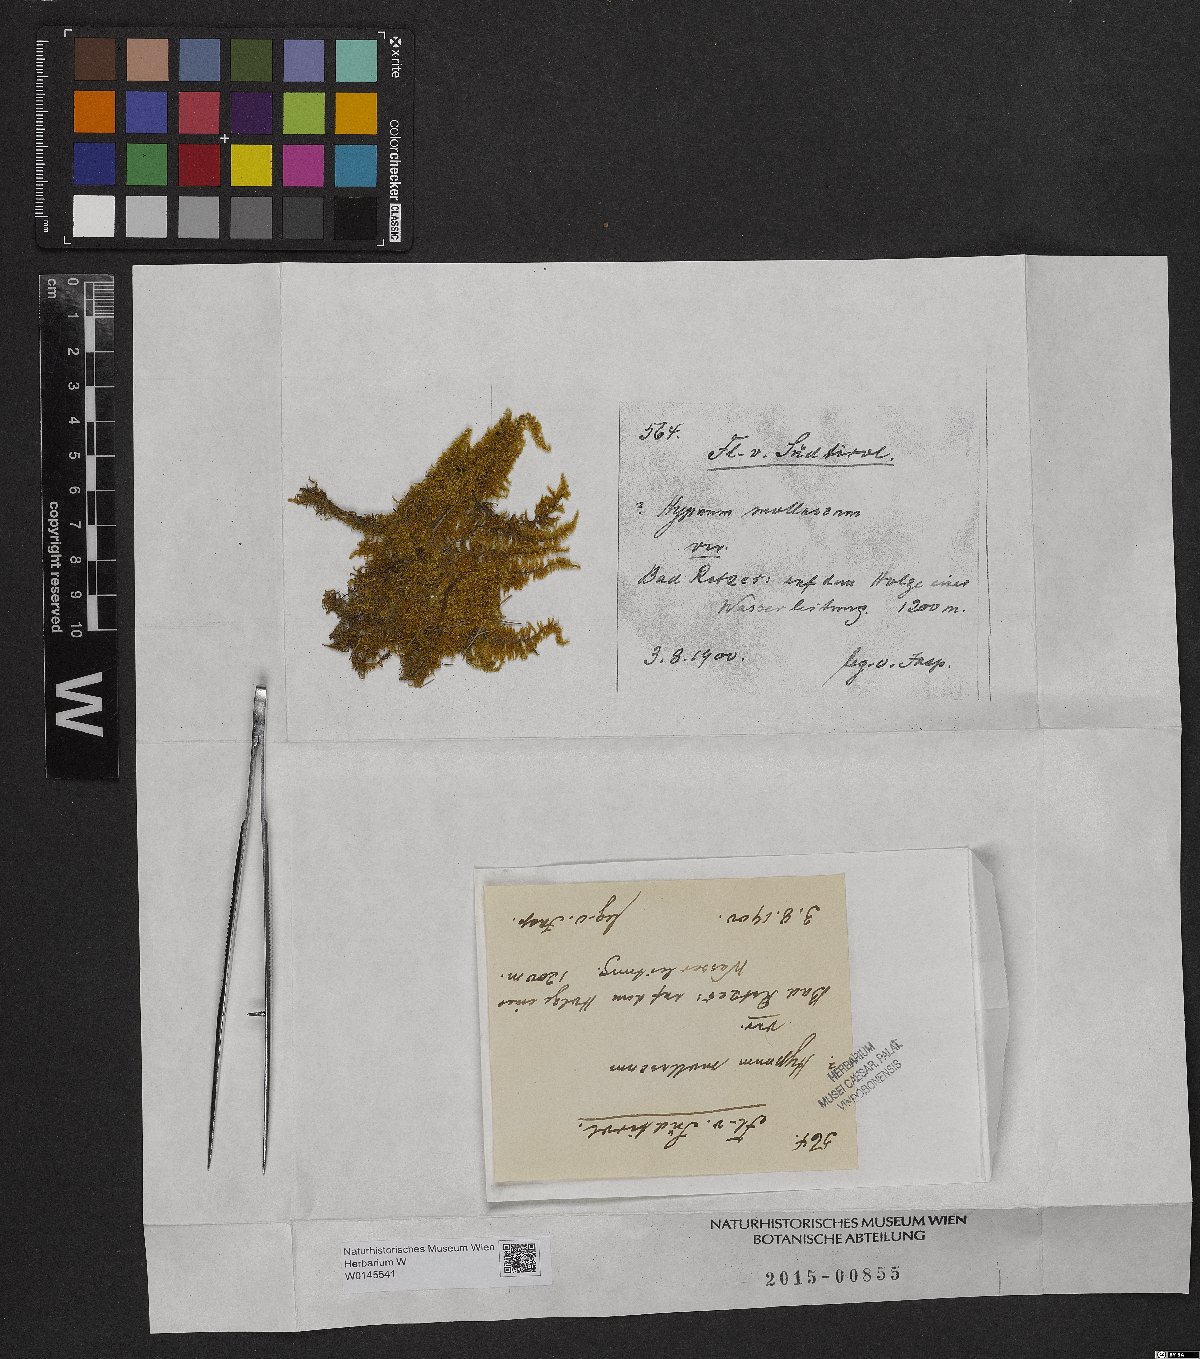 x-rite
colorchecker CLASSIC
mm
cm 0 1 2 3 4 5 6 7 8 9 10
copyright reserved
W
564.
Fl. v. Südtirol.
? Hypnum molluscum
var.
Bad Ratzes: auf dem Holze einer
Wasserleitung. 1200 m.
3.8.1900.
leg. v.
564.
Fl. v. Südtirol.
? Hypnum molluscum
var.
Bad Ratzes: auf dem Holze einer
Wasserleitung. 1200 m.
3.8.1900.
leg. v.
HERBARIUM
MUSEI CAESAR. PALAT.
VINDOBONENSIS
Naturhistorisches Museum Wien
Herbarium W
W0145541
NATURHISTORISCHES MUSEUM WIEN
BOTANISCHE ABTEILUNG
2015-00855
CC BY SA